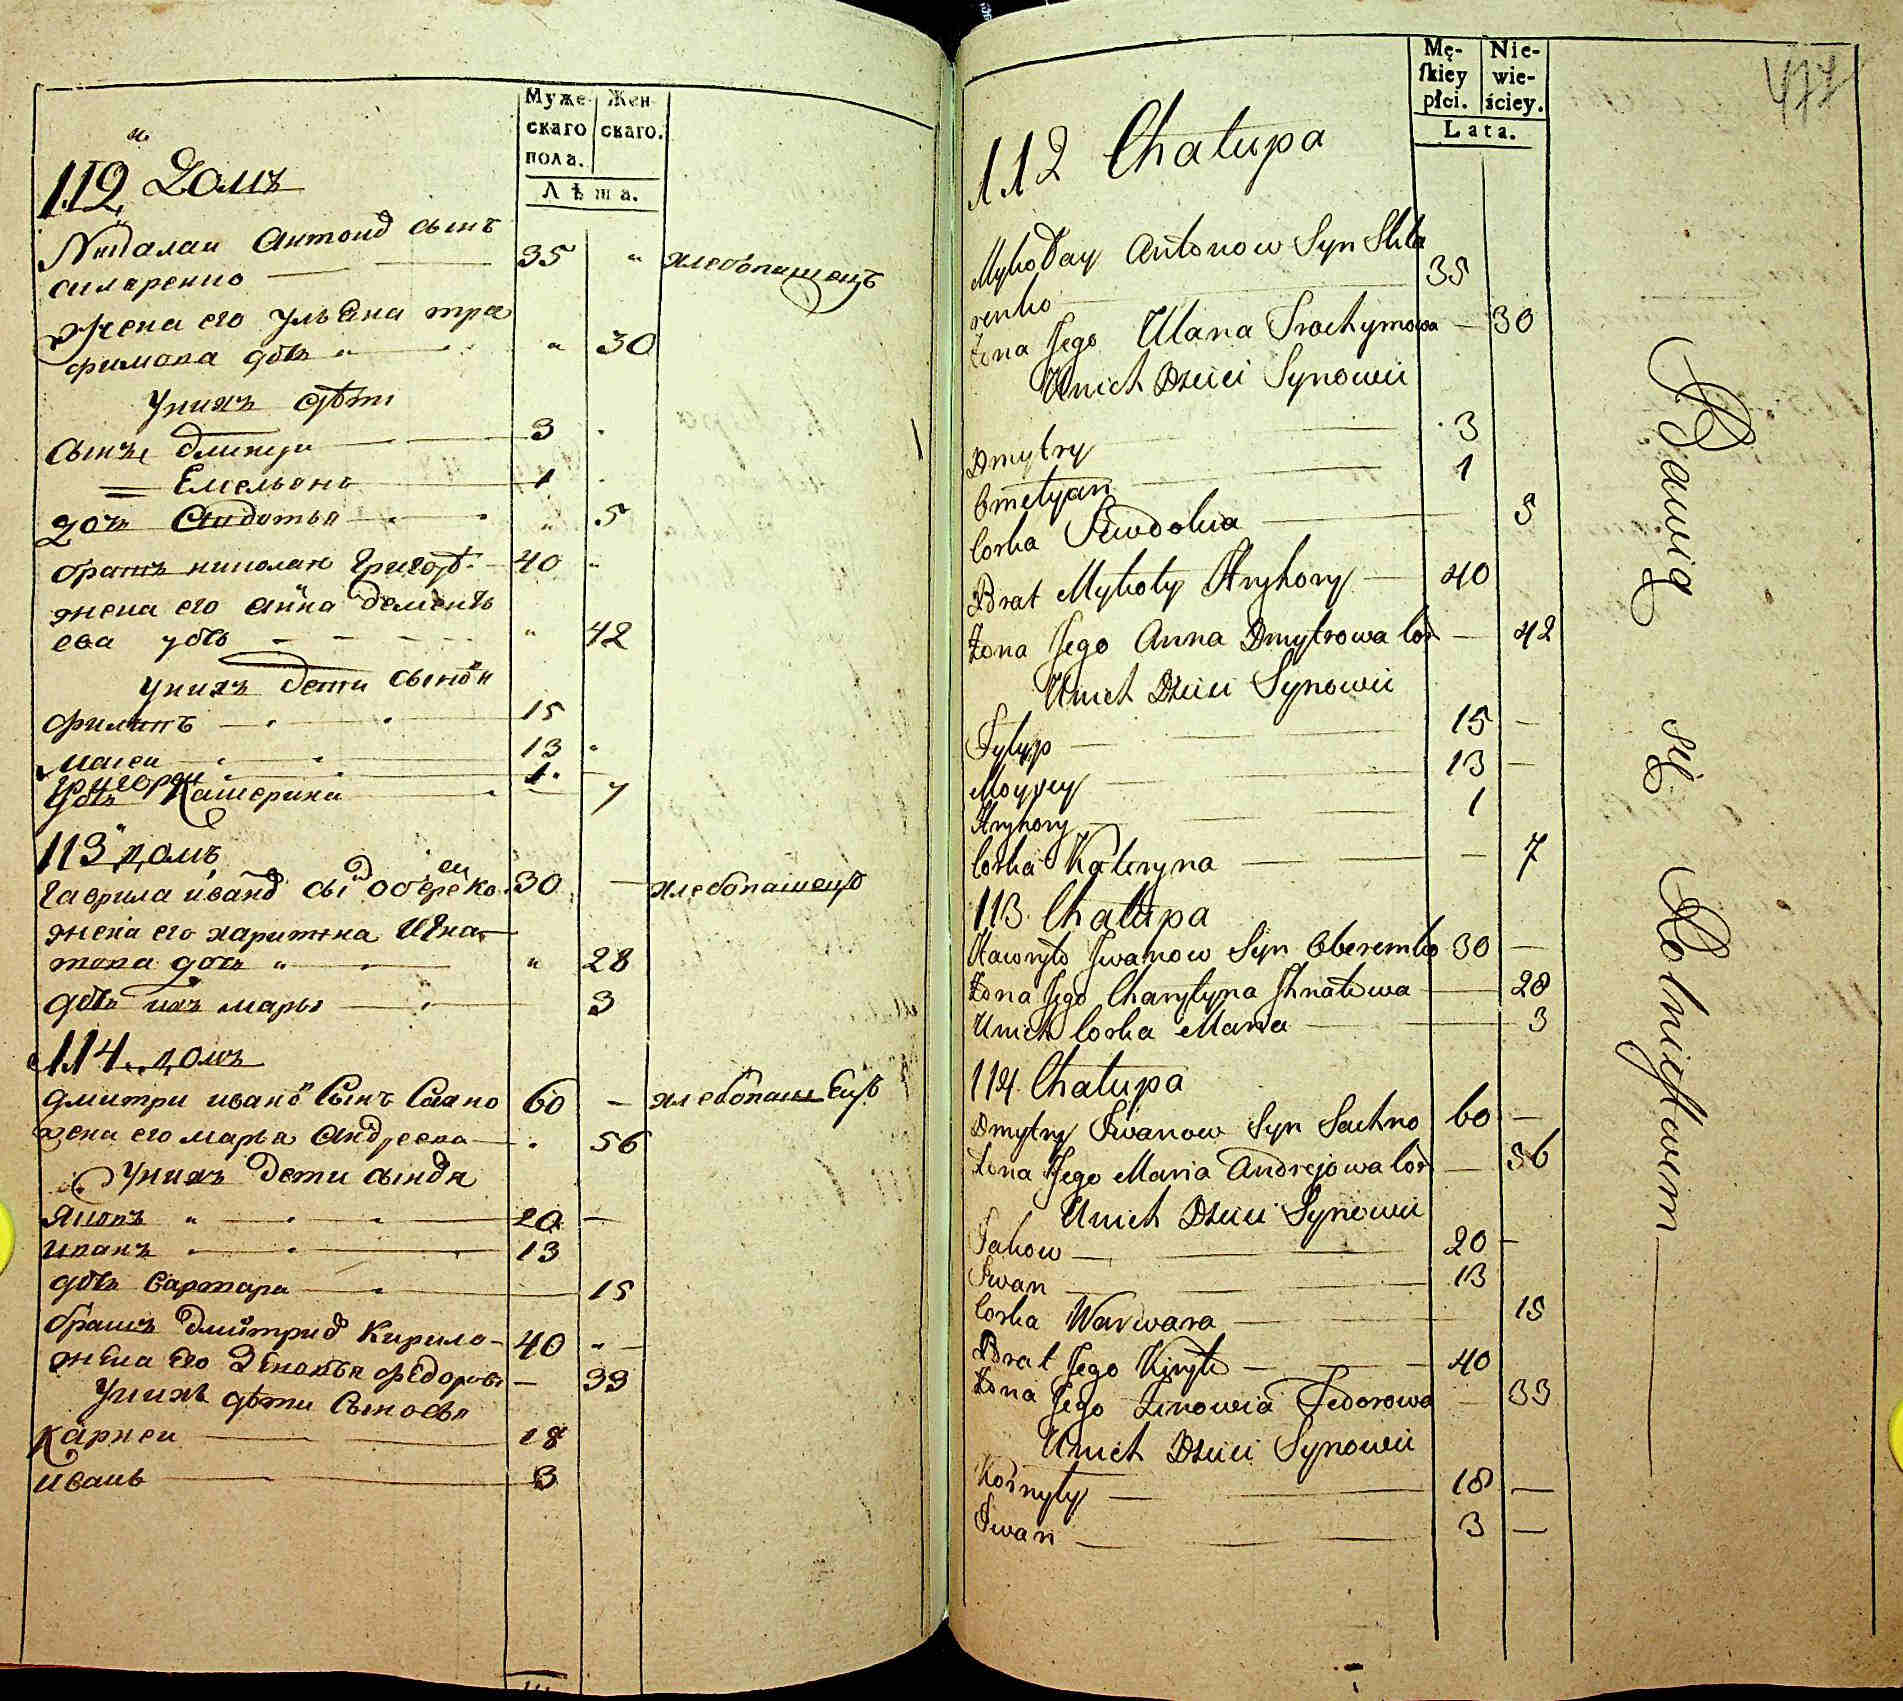 Муже-
скаго
пола.
Жен
скаго.
Лѣта.
112 Домъ
Николаи Антонов сынъ
скляренко 35 " хлебопашецъ
жена его ульяна тра
фимова дочь " 30
У нихъ дѣти
сынъ дмитри 3
Емельянъ 1
дочь Евдотья " 5
братъ николая Григорѣ 40
жена его анна дементь
ева дочь " 42
У нихъ дети сыновя
филипъ 15
Мосеи 13
Григори 1
дочь Катерина 7
113 домъ
Гаврила иванов сы обереко 30 — хлебопашецъ
жена его харитина Игна
това дочь " " 28
дочь их марья 3
114 домъ
дмитри иванов Сынъ Сахно 60 — хлебопашецъ
жена его марья андреева 56
У нихъ дети сыновя
Яковъ " 20 —
иванъ 13
дочь варвара 15
братъ дмитрия Кирило 40 " —
жена Его Зеновья федорова — 33
У нихъ дѣти Сыновья
Карнеи 18
иванъ 3
477
Mę-
skiey
płci.
Nie-
wie-
ściey.
Lata.
112 Chałupa
Mykołay Antonow Syn Skla
renko 35
Żona Jego Ulana Trochymowa — 30
U nich Dzieci Synowie
Dmytry 3
Omelyan 1
Corka Euwdokia 5
Brat Mykoły Hryhory — 40
Żona Jego Anna Dmytrowa Cor — 42
U nich Dzieci Synowie
Fylyp 15 —
Moysey 13 —
Hryhory 1
Corka Kateryna — 7
113. Chałupa
Hawryło Iwanow Syn Oberemko 30 —
Żona Jego Charytyna Ihnatowa — 28
U nich Corka Maria — 3
114. Chałupa
Dmytry Iwanow Syn Sachno 60 —
Żona Jego Maria Andrejowa Cor — 56
U nich Dzieci Synowie
Jakow — 20 —
Iwan 13
Corka Warwara — 15
Brat Jego Kiryło — 40
Żona Jego Zinowia Fedorowa — 33
U nich Dzieci Synowie
Kornyły — 18 —
Iwan — 3 —
Bawią się Rolnictwem